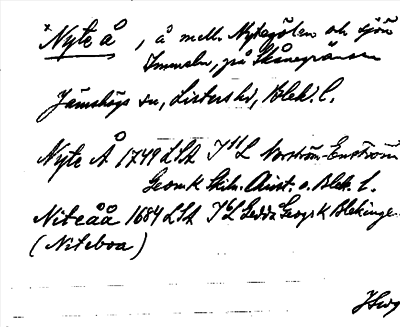 *Nyte å, å mell. Nytegölen och sjön
Immeln, på Skånegränsen
Jämshögs sn, Listers hd, Blek. l.
Nyte Å 1749 LSA I 11 L Norström-Enström
Geom K Skiln. Christ. o. Blek. l.
Niteåå 1684 LSA I 6 L Gedda Geogr K Blekinge
(Niteboa)